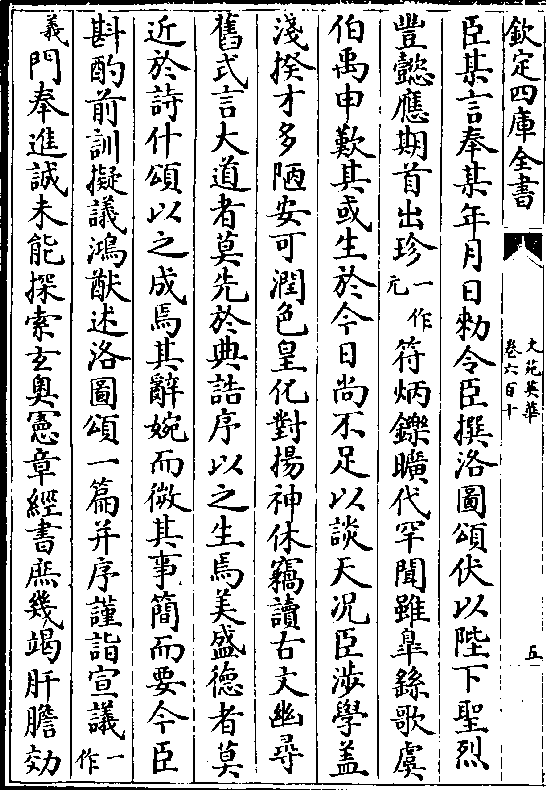 欽定四庫全書
文苑英華
卷六百十
五
臣某言奉某年月日勑令臣撰洛圖頌伏以陛下聖烈
豐懿應期首出珍一作元符炳鑠曠代罕聞雖臯繇歌虞
伯禹申歎其或生於今日尚不足以談天况臣涉學葢
淺揆才多陋安可潤色皇化對揚神休竊讀古文幽尋
舊式言大道者莫先於典誥序以之生焉美盛德者莫
近於詩什頌以之成焉其辭婉而微其事簡而要今臣
斟酌前訓擬議鴻猷述洛圖頌一篇并序謹詣宣議一作
義門奉進誠未能探索玄奥憲章經書庶幾竭肝膽効